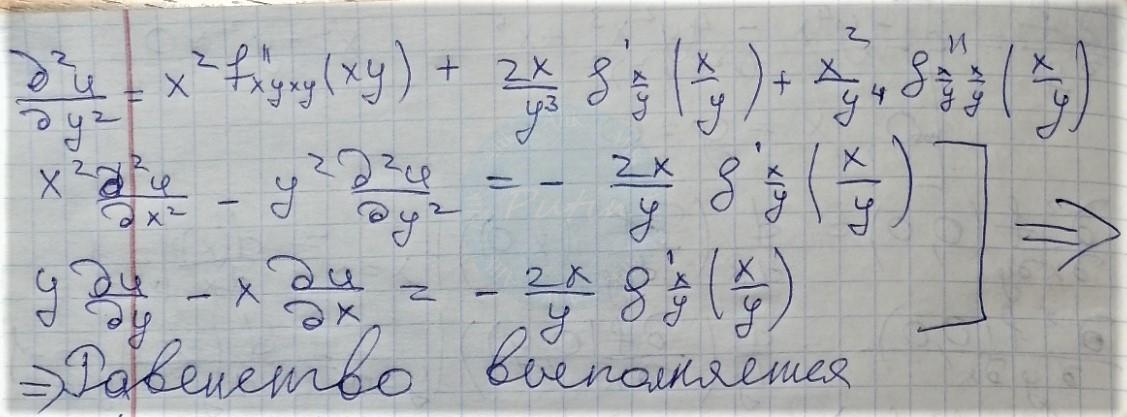 ∂²u/∂y² = x² f''ₓᵧₓᵧ(xy) + 2x/y³ g'_{x/y}(x/y) + x²/y⁴ g''_{x/y x/y}(x/y)
x² ∂²u/∂x² - y² ∂²u/∂y² = - 2x/y g'_{x/y}(x/y)
y ∂u/∂y - x ∂u/∂x = - 2x/y g'_{x/y}(x/y) ] ⇒
⇒ Равенство выполняется